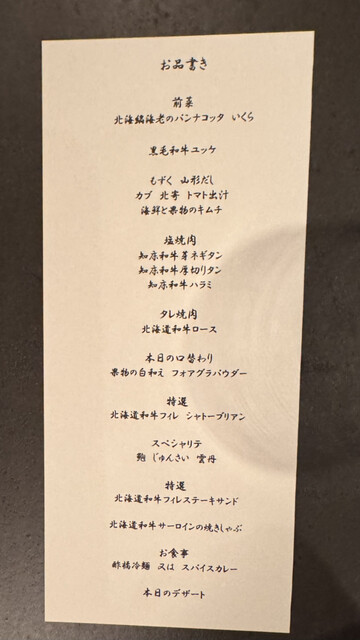 お品書き
前菜
北海縞海老のパンナコッタ いくら
黒毛和牛ユッケ
もずく 山形だし
カブ 北寄 トマト出汁
海鮮と果物のキムチ
塩焼肉
知床和牛芽ネギタン
知床和牛厚切りタン
知床和牛ハラミ
タレ焼肉
北海道和牛ロース
本日の口替わり
果物の白和え フォアグラパウダー
特選
北海道和牛フィレ シャトーブリアン
スペシャリテ
鮑 じゅんさい 雲丹
特選
北海道和牛フィレステーキサンド
北海道和牛サーロインの焼きしゃぶ
お食事
酢橘冷麺 又は スパイスカレー
本日のデザート